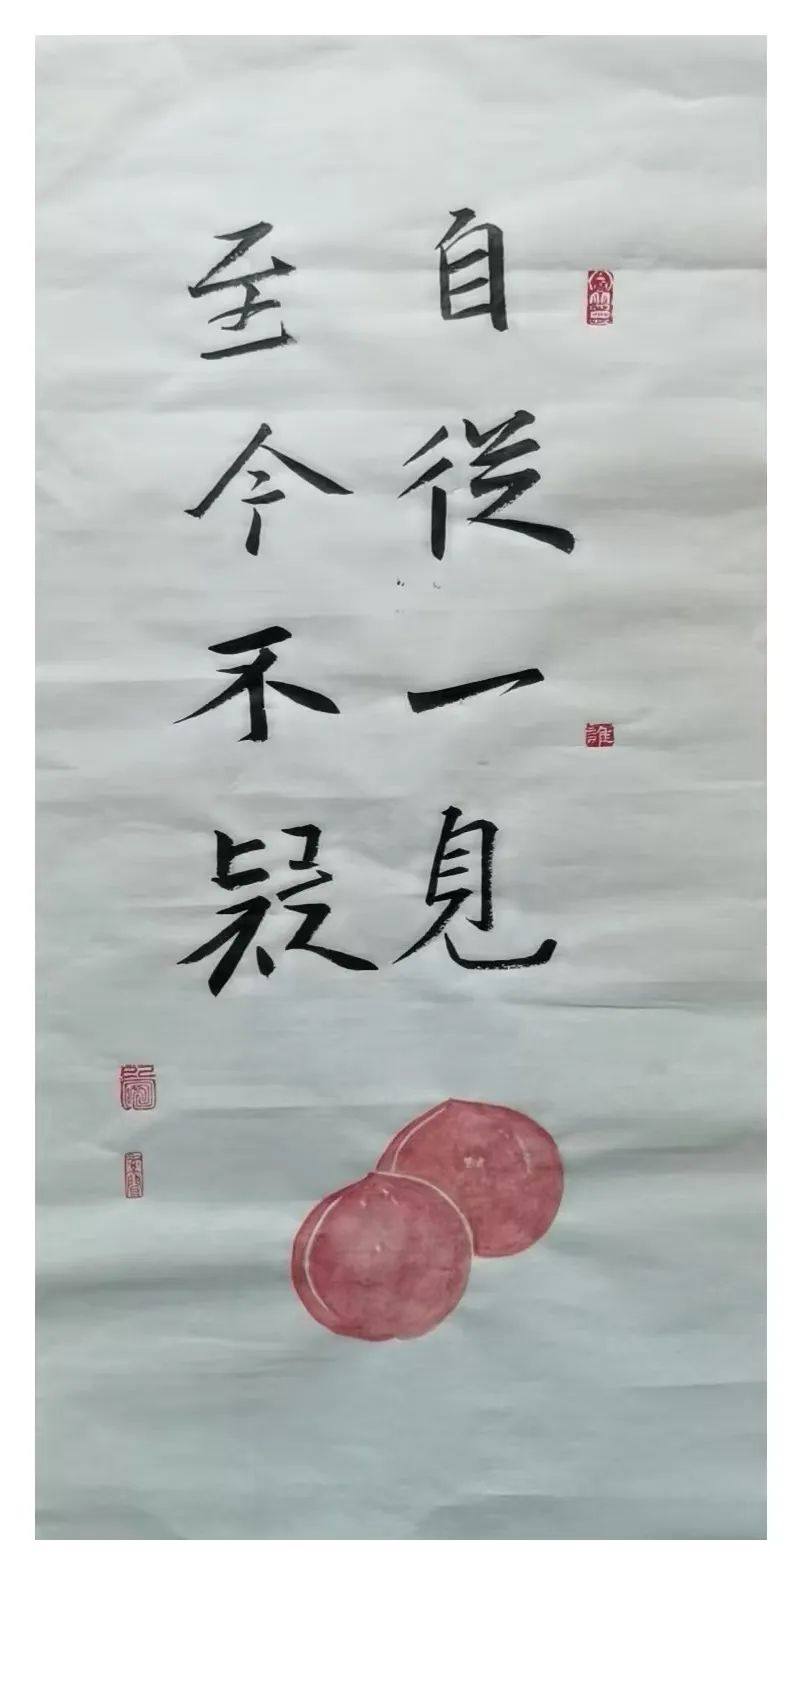 自從一見
至今不疑